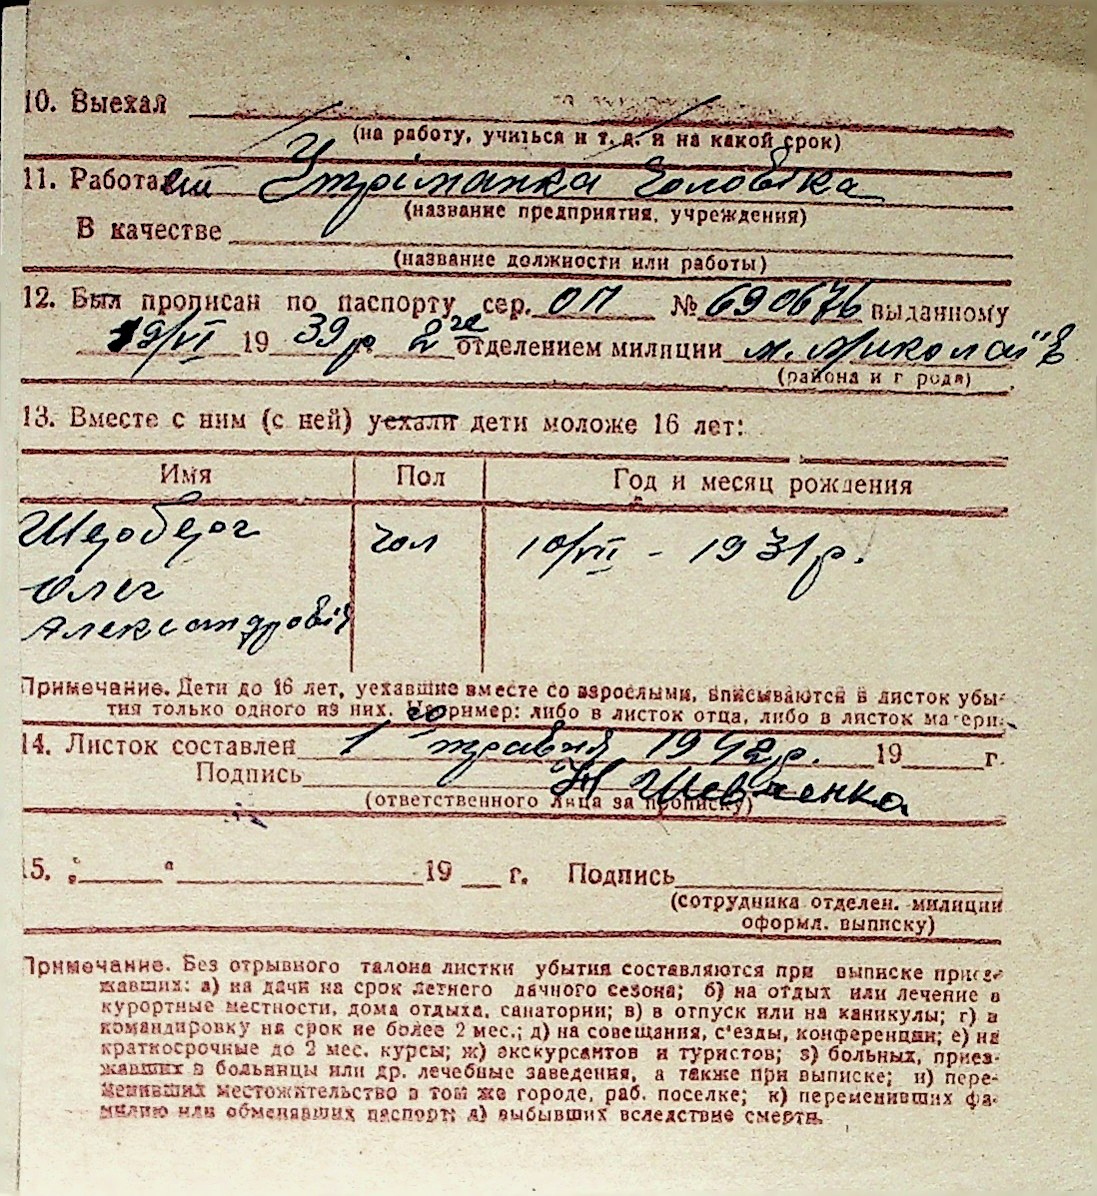 10. Выехал
(на работу, учиться и т. д. и на какой срок)
11. Работает Утріманка чоловіка
(название предприятия, учреждения)
В качестве
(название должности или работы)
12. Был прописан по паспорту сер. ОП № 690676 выданному
19/VI 19 39 р. 2 ге отделением милиции м. Миколаїв
(района и города)
13. Вместе с ним (с ней) уехали дети моложе 16 лет:
Имя Пол Год и месяц рождения
чол 10/VII - 1931 р.
Олег
Александрович
Примечание. Дети до 16 лет, уехавшие вместе со взрослыми, вписываются в листок убы-
тия только одного из них. Например: либо в листок отца, либо в листок матери.
14. Листок составлен 1го травня 1942 р. 19 г.
Подпись Шевченко
(ответственного лица за прописку)
15. „ “ 19 г. Подпись
(сотрудника отделен. милиции
оформл. выписку)
Примечание. Без отрывного талона листки убытия составляются при выписке приез-
жавших: а) на дачи на срок летнего дачного сезона; б) на отдых или лечение в
курортные местности, дома отдыха, санатории; в) в отпуск или на каникулы; г) в
командировку на срок не более 2 мес.; д) на совещания, с'езды, конференции; е) на
краткосрочные до 2 мес. курсы; ж) экскурсантов и туристов; з) больных, приез-
жавших в больницы или др. лечебные заведения, а также при выписке; и) пере-
менивших местожительство в том же городе, раб. поселке; к) переменивших фа-
милию или обменявших паспорт; л) выбывших вследствие смерти.